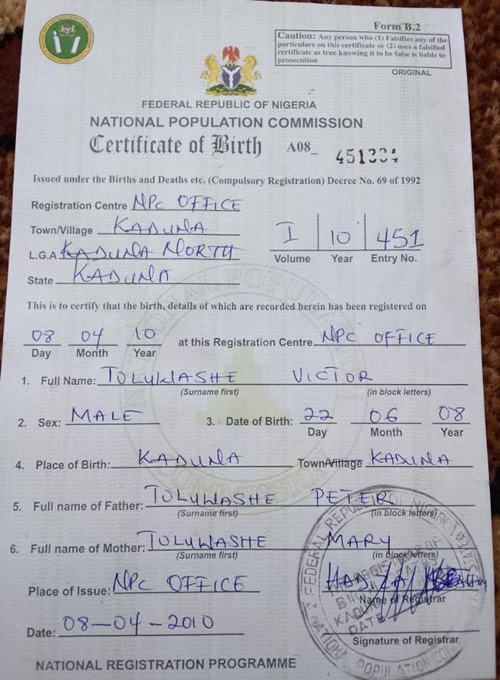 Form B.2
Caution: Any person who (1) Falsifies any of the
particulars on this certificate or (2) uses a falsified
certificate as true knowing it to be false is liable to
prosecution
ORIGINAL
FEDERAL REPUBLIC OF NIGERIA
NATIONAL POPULATION COMMISSION
Certificate of Birth A08_ 451334
Issued under the Births and Deaths etc. (Compulsory Registration) Decree No. 69 of 1992
Registration Centre NPC OFFICE
Town/Village KADUNA
L.G.A KADUNA NORTH
State KADUNA
I 10 451
Volume Year Entry No.
This is to certify that the birth, details of which are recorded herein has been registered on
08 04 10 at this Registration Centre NPC OFFICE
Day Month Year
1. Full Name: TOLUWASHE VICTOR
(Surname first) (in block letters)
2. Sex: MALE 3. Date of Birth: 22 06 08
Day Month Year
4. Place of Birth: KADUNA Town/Village KADUNA
5. Full name of Father: TOLUWASHE PETER
(Surname first) (in block letters)
6. Full name of Mother: TOLUWASHE MARY
(Surname first) (in block letters)
Place of Issue: NPC OFFICE
Name of Registrar
Date: 08-04-2010
Signature of Registrar
NATIONAL REGISTRATION PROGRAMME